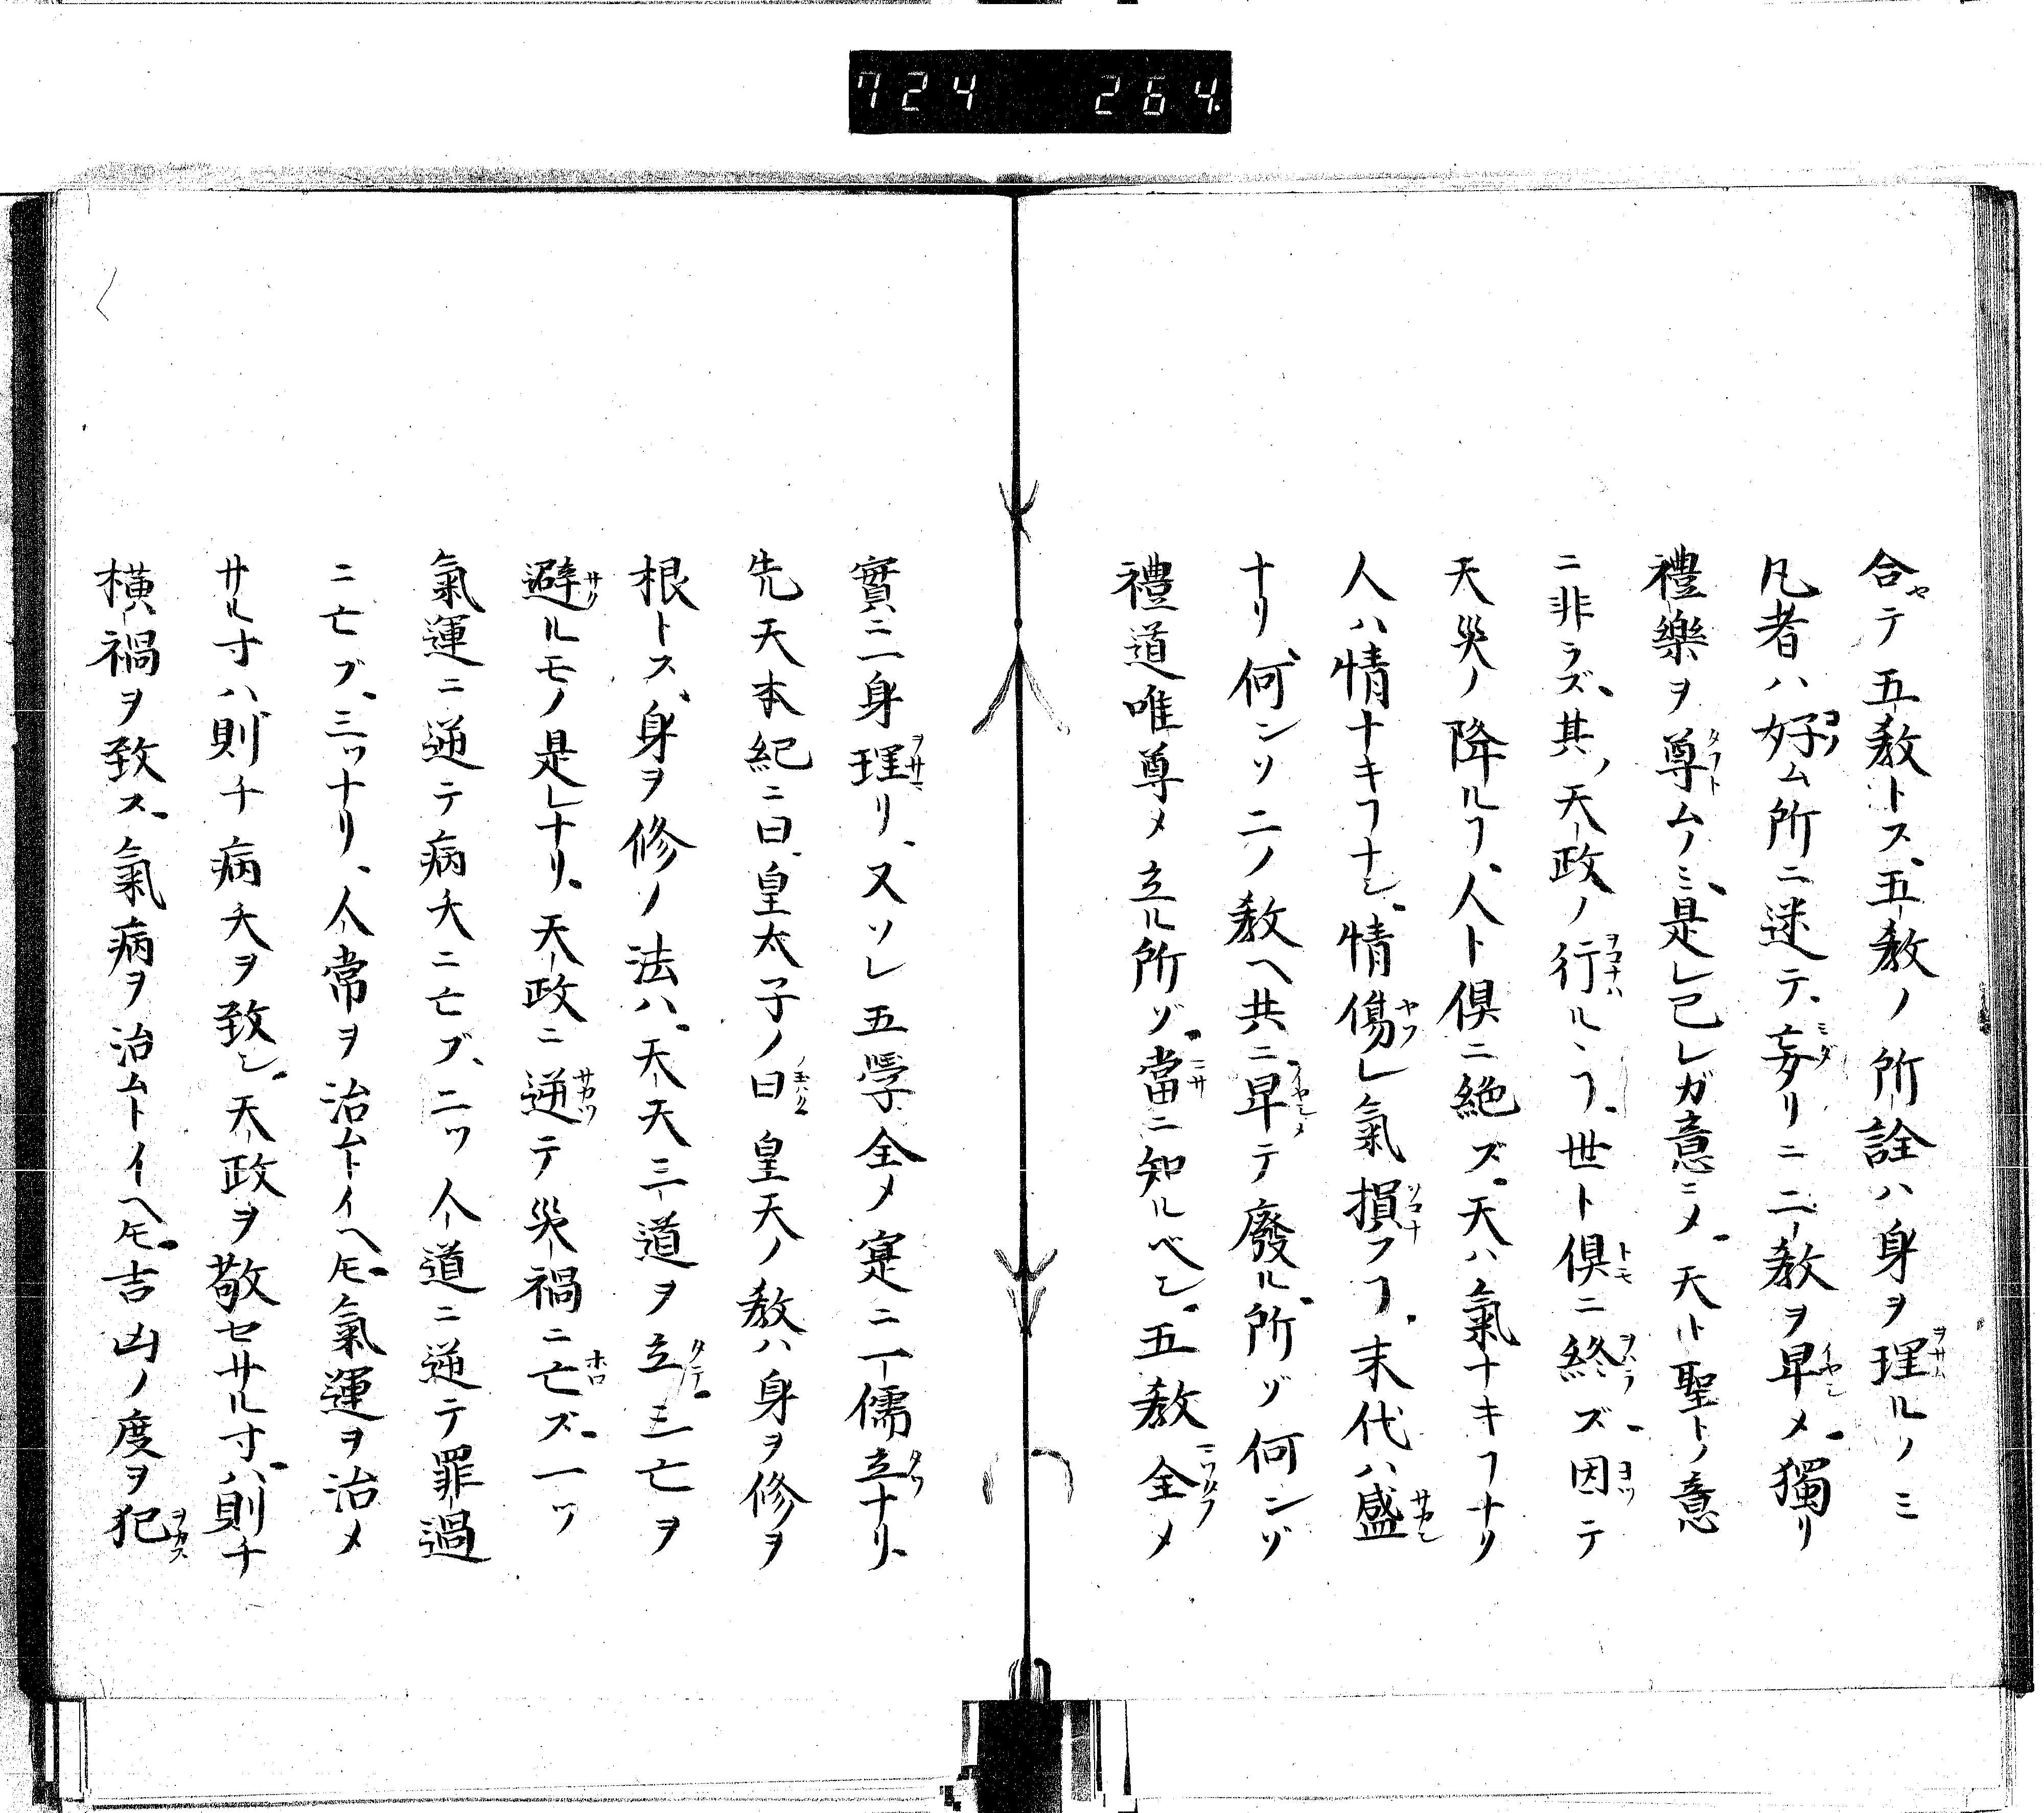 724 264.
合テ五教トス、五教ノ所詮ハ身ヲ理ルノミ
凡者ハ好ム所ニ迷テ、妄リニ二教ヲ卑メ、獨リ
禮樂ヲ尊ムノミ、是レ己レガ意ニメ、天ト聖トノ意
ニ非ラズ、其ノ天政ノ行ルヽヿ、世ト倶ニ終ズ、因テ
天災ノ降ルヿ、人ト倶ニ絶ズ、天ハ氣ナキヿナリ
人ハ情ナキヿナシ、情傷レ氣損フヿ、末代ハ盛
ナリ、何ンソ二ノ教ヘ共ニ卑テ廢ル所ゾ何ンゾ
禮道唯尊メ立ル所ゾ、當ニ知ルベシ、五教全メ
實ニ一身理リ、又ソレ五學全メ寔ニ一儒立ナリ、
先天本紀ニ曰、皇太子ノ曰皇天ノ教ハ身ヲ修ヲ
根トス、身ヲ修ノ法ハ、天天三道ヲ立三亡ヲ
避ルモノ是レナリ、天政ニ逆テ災禍ニ亡ズ、一ツ
氣運ニ逆テ病夭ニ亡ブ、二ツ人道ニ逆テ罪過
ニ亡ブ、三ツナリ、人常ヲ治ムトイヘ𪜈、氣運ヲ治メ
サル寸ハ則チ病夭ヲ致シ、天政ヲ敬セサル寸ハ則チ
横禍ヲ致ス、氣病ヲ治ムトイヘ𪜈、吉凶ノ度ヲ犯